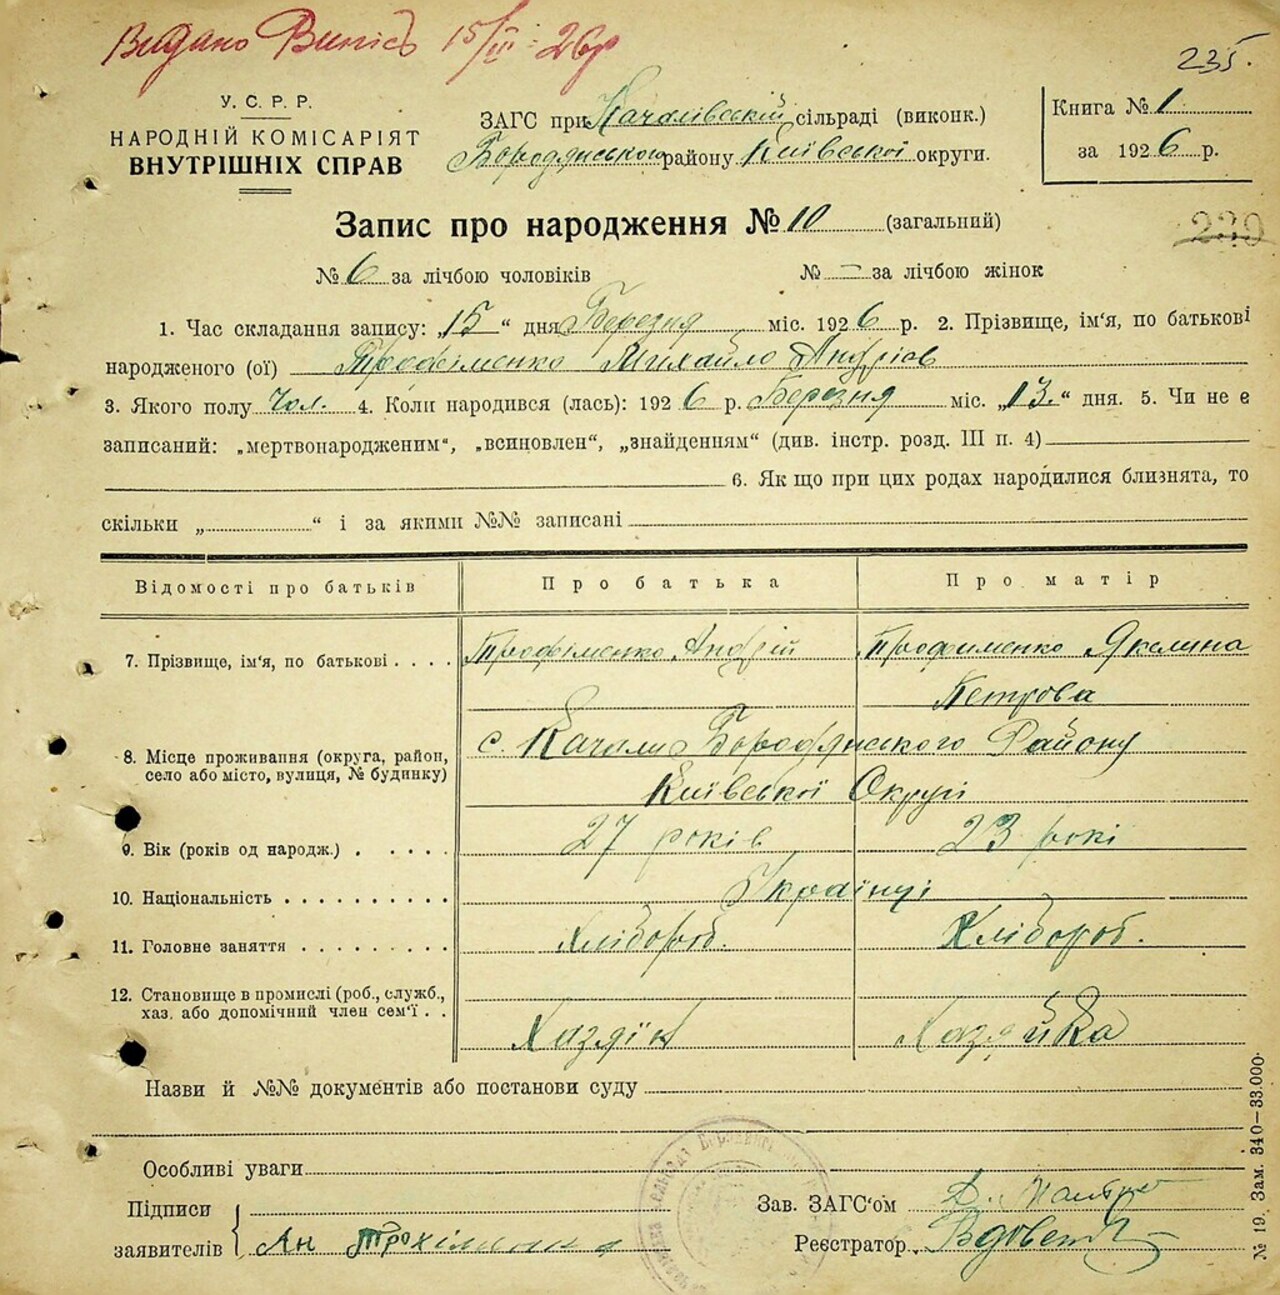 Видано Випісь 15/III-26р
235.
У. С. Р. Р.
НАРОДНІЙ КОМІСАРІЯТ
ВНУТРІШНІХ СПРАВ
ЗАГС при Качалівській сільраді (виконк.)
Бородянського району Київської округи.
Книга № 1
за 1926 р.
Запис про народження № 10 (загальний)
239
№ 6 за лічбою чоловіків № — за лічбою жінок
1. Час складання запису: „15“ дня Березня міс. 1926 р. 2. Прізвище, ім'я, по батькові
народженого (ої) Трофіменко Михайло Андріїв
3. Якого полу Чол. 4. Коли народився (лась): 1926 р. Березня міс. „13.“ дня. 5. Чи не є
записаний: „мертвонародженим“, „всиновлен“, „знайденням“ (див. інстр. розд. III п. 4)
6. Як що при цих родах народилися близнята, то
скільки „ “ і за якими №№ записані
Відомості про батьків Про батька Про матір
7. Прізвище, ім'я, по батькові . . . . Трофіменко Андрій Трофименко Якелина
Петрова
8. Місце проживання (округа, район, с. Качали Бородянського Району
село або місто, вулиця, № будинку) Київської Округі
9. Вік (років од народж.) . . . . . 27 років 23 рокі
10. Національність . . . . . . . . . . Українці
11. Головне заняття . . . . . . . . . Хлібороб. Хлібороб.
12. Становище в промислі (роб., служб.,
хаз. або допомічний член сем'ї . . Хазяїн Хазяйка
Назви й №№ документів або постанови суду
Особливі уваги
Підписи
заявителів Ан Трохіменко
Зав. ЗАГС'ом
Реєстратор
№ 19. Зам. 340—33.000.